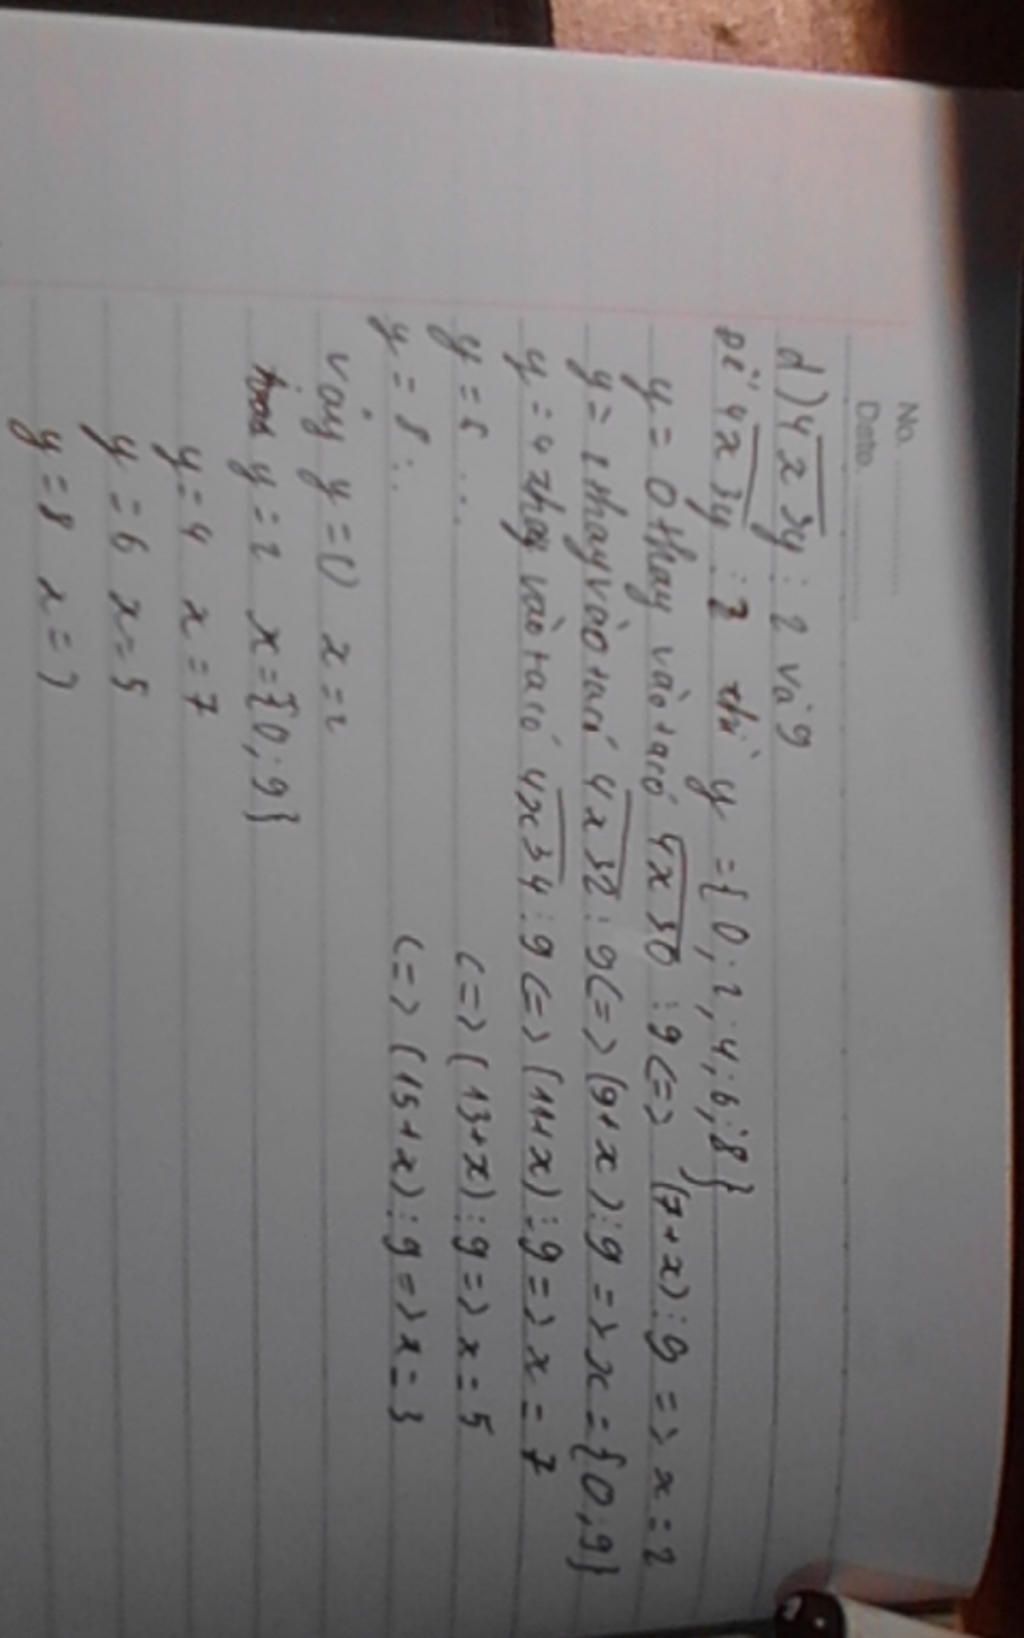 No. ............
Date. ............
d) 4x3y ⋮ 2 và 9
Để 4x3y ⋮ 2 thì y = {0; 2; 4; 6; 8}
y = 0 thay vào ta có 4x30 ⋮ 9 <=> (7+x) ⋮ 9 => x = 2
y = 2 thay vào ta có 4x32 ⋮ 9 <=> (9+x) ⋮ 9 => x = {0; 9}
y = 4 thay vào ta có 4x34 ⋮ 9 <=> (11+x) ⋮ 9 => x = 7
y = 6 ... <=> (13+x) ⋮ 9 => x = 5
y = 8 ... <=> (15+x) ⋮ 9 => x = 3
vậy y = 0 x = 2
y = 2 x = {0; 9}
y = 4 x = 7
y = 6 x = 5
y = 8 x = 3